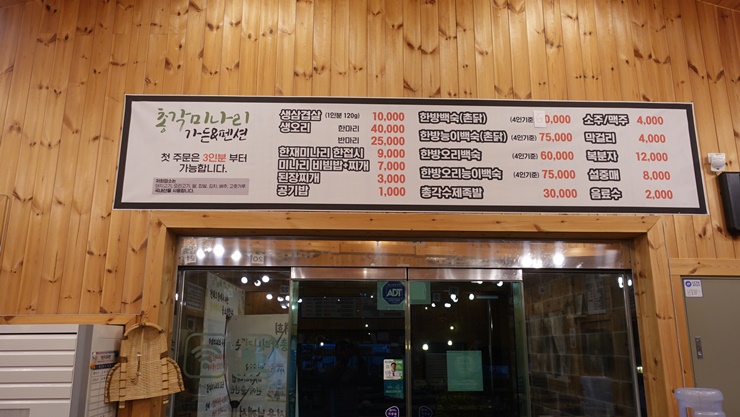 총각미나리
가든&펜션
첫 주문은 3인분 부터
가능합니다.
생삼겹살 (1인분 120g) 10,000
생오리 한마리 40,000
반마리 25,000
한재미나리 한접시 9,000
미나리 비빔밥+찌개 7,000
된장찌개 3,000
공기밥 1,000
한방백숙(촌닭) (4인기준) 0,000
한방능이백숙(촌닭) (4인기준) 75,000
한방오리백숙 (4인기준) 60,000
한방오리능이백숙 (4인기준) 75,000
총각수제족발 30,000
소주/맥주 4,000
막걸리 4,000
복분자 12,000
설중매 8,000
음료수 2,000
ADT